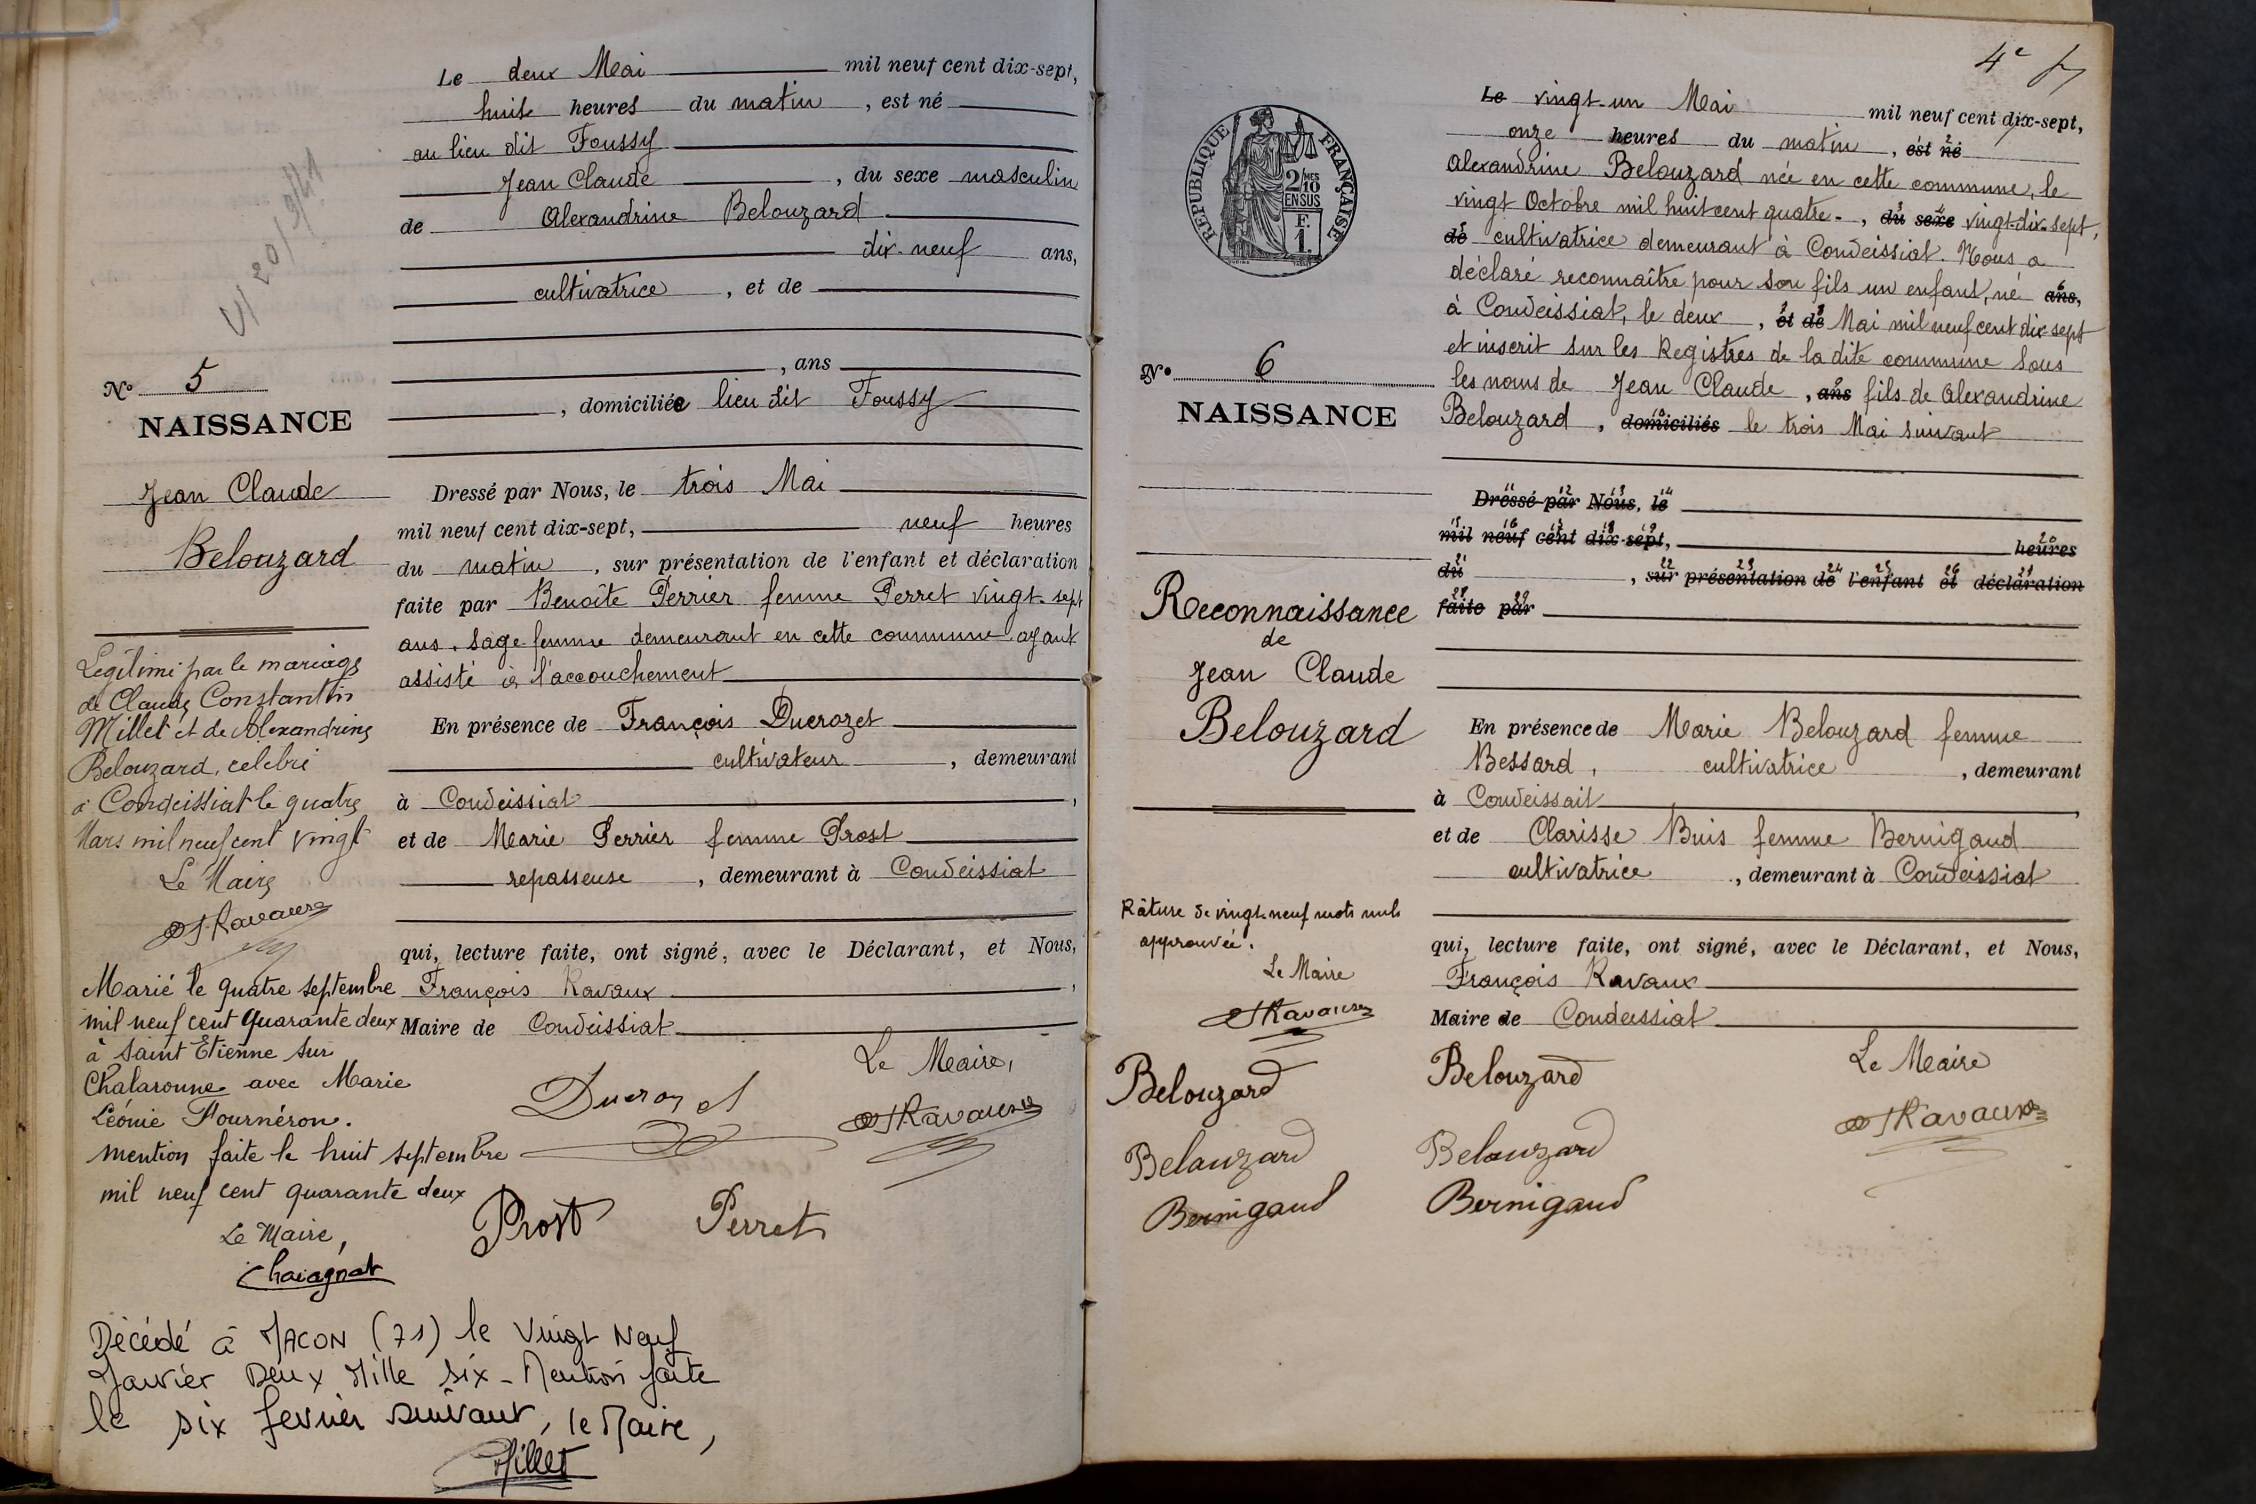 Le deux Mai mil neuf cent dix-sept,
huit heures du matin, est né
au lieu dit Foussy
Jean Claude, du sexe masculin
de Alexandrine Belouzard
dix-neuf ans,
cultivatrice, et de
, ans
, domiciliée lieu dit Foussy
Dressé par Nous, le trois Mai
mil neuf cent dix-sept, neuf heures
du matin, sur présentation de l'enfant et déclaration
faite par Benoîte Perrier femme Perret vingt-sept
ans, sage-femme demeurant en cette commune ayant
assisté à l'accouchement
En présence de François Ducrozet
cultivateur, demeurant
à Condeissiat,
et de Marie Perrier femme Prost
repasseuse, demeurant à Condeissiat
qui, lecture faite, ont signé, avec le Déclarant, et Nous,
François Ravaux,
Maire de Condeissiat
Le Maire,
Ducrozet
Ravaux
Prost Perret
V/ 20/2/41
No 5
NAISSANCE
Jean Claude
Belouzard
Légitimé par le mariage
de Claude Constantin
Millet et de Alexandrine
Belouzard, célébré
à Condeissiat le quatre
Mars mil neuf cent vingt
Le Maire
Ravaux
Marié le quatre septembre
mil neuf cent quarante deux
à Saint Etienne sur
Chalaronne avec Marie
Léonie Fournéron.
mention faite le huit septembre
mil neuf cent quarante deux
Le Maire,
Chaiagnat
Décédé à MACON (71) le vingt Neuf
Janvier Deux Mille six - Mention faite
le six fevrier suivant, le Maire,
Millet
4e
RÉPUBLIQUE FRANÇAISE
2/10 MES
EN SUS
F.
1.
Le vingt-un Mai mil neuf cent dix-sept,
onze heures du matin, est né
Alexandrine Belouzard née en cette commune, le
vingt Octobre mil huit cent quatre-, du sexe vingt-dix-sept,
de cultivatrice demeurant à Condeissiat. Nous a
déclaré reconnaître pour son fils un enfant, né ans,
à Condeissiat, le deux, et de Mai mil neuf cent dix sept
et inscrit sur les Registres de la dite commune sous
les noms de Jean Claude, ans fils de Alexandrine
Belouzard, domiciliés le trois Mai suivant
Dressé par Nous, le
mil neuf cent dix-sept, heures
du, sur présentation de l'enfant et déclaration
faite par
En présence de Marie Belouzard femme
Bessard, cultivatrice, demeurant
à Condeissait
et de Clarisse Buis femme Bernigaud
cultivatrice, demeurant à Condeissiat
qui, lecture faite, ont signé, avec le Déclarant, et Nous,
François Ravaux
Maire de Condeissiat
Le Maire
Ravaux
Belouzard
Belouzard
Bernigaud
No 6
NAISSANCE
Reconnaissance
de
Jean Claude
Belouzard
Râture de vingt-neuf mots nuls
approuvée.
Le Maire
Ravaux
Belouzard
Belouzard
Bernigaud